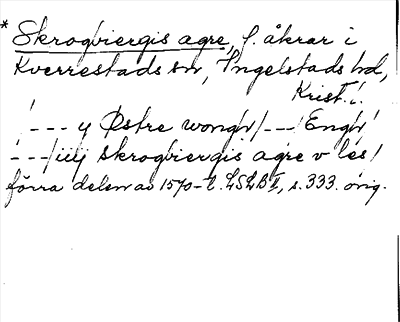 * Skrogbiergis agre, f. åkrar i
Kverrestads sn, Ingelstads hd,
Krist. l.
/--- y Østre wongh/---/Engh/
/---/iiij skrogbiergis agre v les/
förra delen av 1570-t. LSLB II, s. 333. orig.